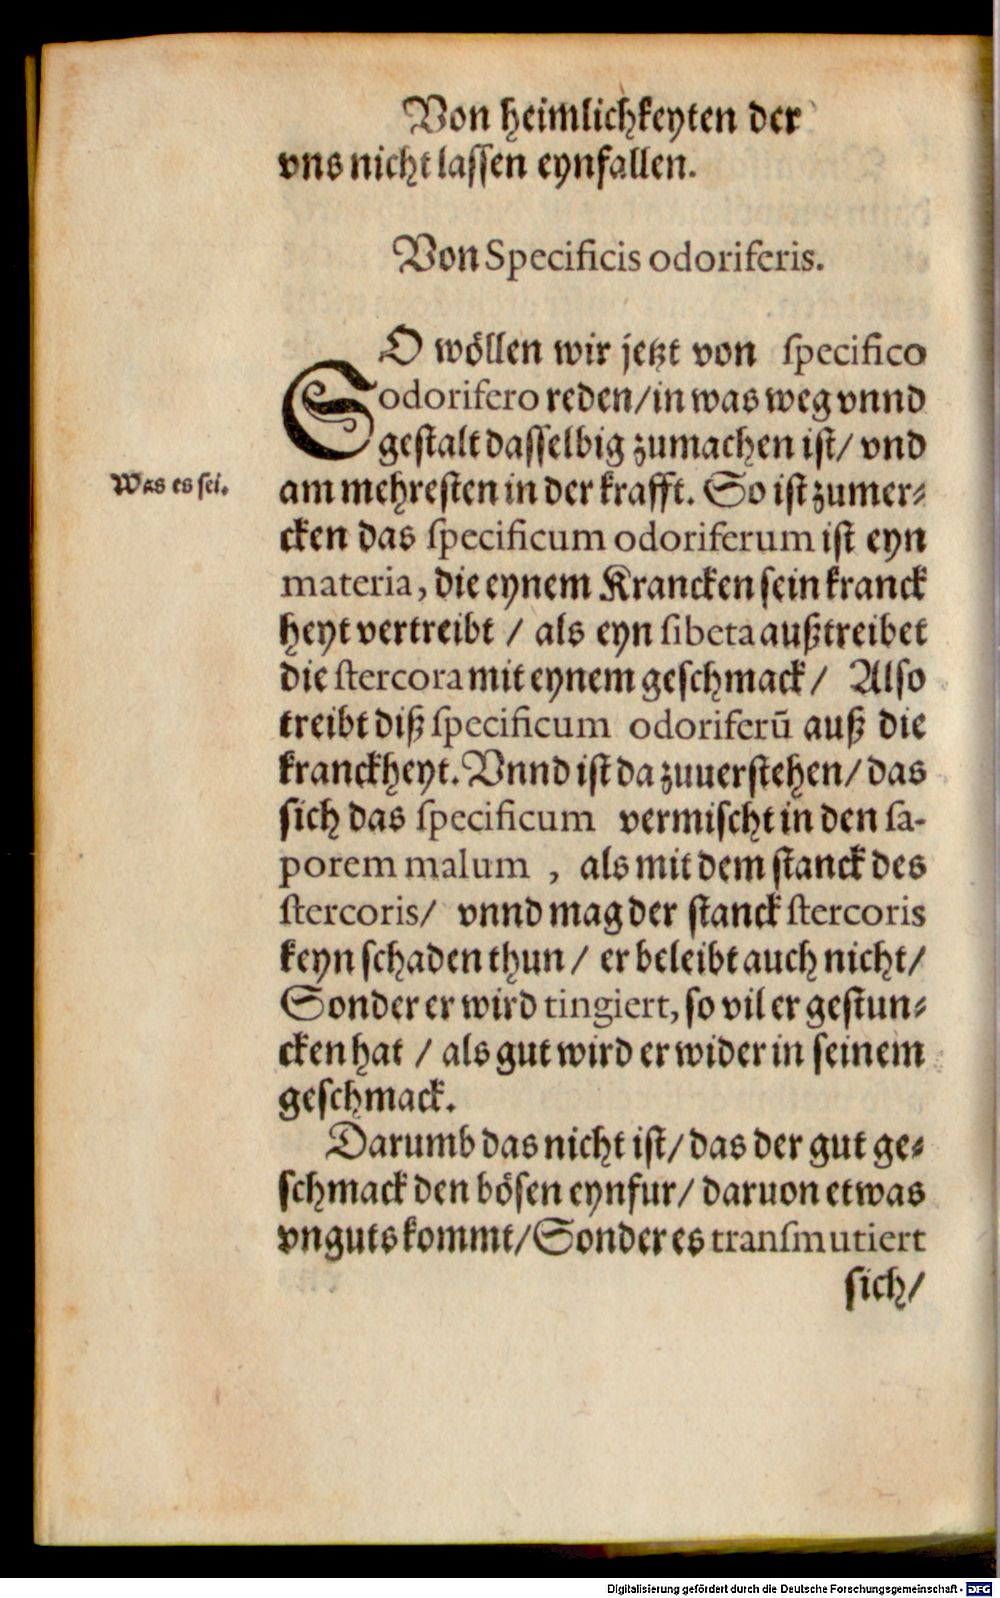 Von heimlichkeyten der
vns nicht lassen eynfallen.
Von Specificis odoriferis.
SO wöllen wir jetzt von specifico
odorifero reden/in was weg vnnd
gestalt dasselbig zumachen ist/ vnd
Was es sei.
am mehresten in der krafft. So ist zumer⸗
cken das specificum odoriferum ist eyn
materia, die eynem Krancken sein kranck
heyt vertreibt / als eyn sibeta außtreibet
die stercora mit eynem geschmack/ Also
treibt diß specificum odoriferū auß die
kranckheyt. Vnnd ist da zuuerstehen/ das
sich das specificum vermischt in den sa-
porem malum , als mit dem stanck des
stercoris/ vnnd mag der stanck stercoris
keyn schaden thun/ er beleibt auch nicht/
Sonder er wird tingiert, so vil er gestun⸗
cken hat / als gut wird er wider in seinem
geschmack.
Darumb das nicht ist/ das der gut ge⸗
schmack den bösen eynfur/ daruon etwas
vnguts kommt/ Sonder es transmutiert
sich/
Digitalisierung gefördert durch die Deutsche Forschungsgemeinschaft - DFG